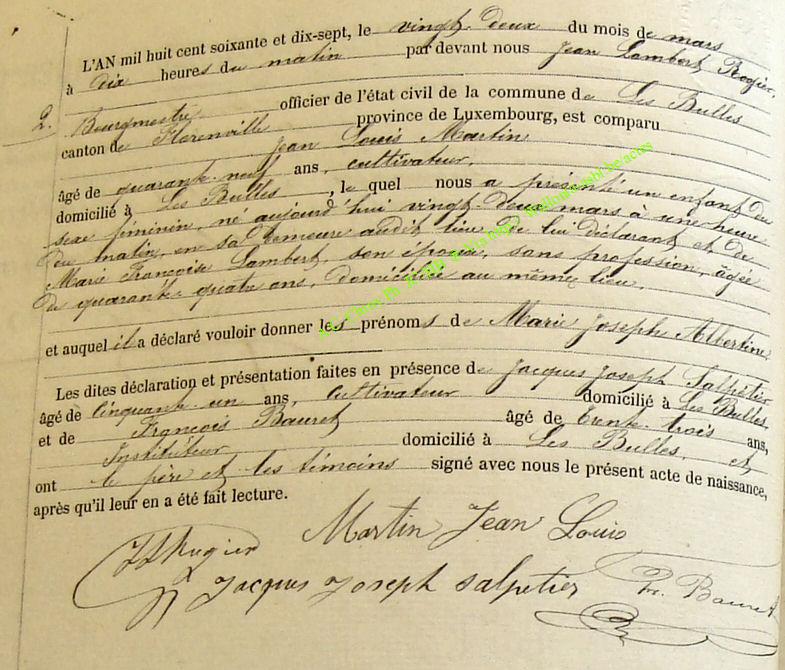 L'AN mil huit cent soixante et dix-sept, le vingt-deux du mois de mars
à dix heures du matin par devant nous Jean Lambert Rogier,
2. Bourgmestre officier de l'état civil de la commune de Les Bulles
canton de Florenville province de Luxembourg, est comparu
Jean Louis Martin
âgé de quarante-neuf ans, cultivateur,
domicilié à Les Bulles, le quel nous a présenté un enfant du
sexe féminin, né aujourd'hui vingt-deux mars à une heure
du matin, en sa demeure audit lieu de lui déclarant et de
Marie Françoise Lambert, son épouse, sans profession, âgée
de quarante-quatre ans, domiciliée au même lieu,
et auquel il a déclaré vouloir donner les prénoms de Marie Joseph Albertine
Les dites déclaration et présentation faites en présence de Jacques Joseph Salpétier
âgé de cinquante-un ans, cultivateur domicilié à Les Bulles
et de François Bauret âgé de trente-trois ans,
Instituteur domicilié à Les Bulles, et
ont le père et les témoins signé avec nous le présent acte de naissance,
après qu'il leur en a été fait lecture.
Martin Jean Louis
JLRogier
Jacques Joseph Salpetier Bauret